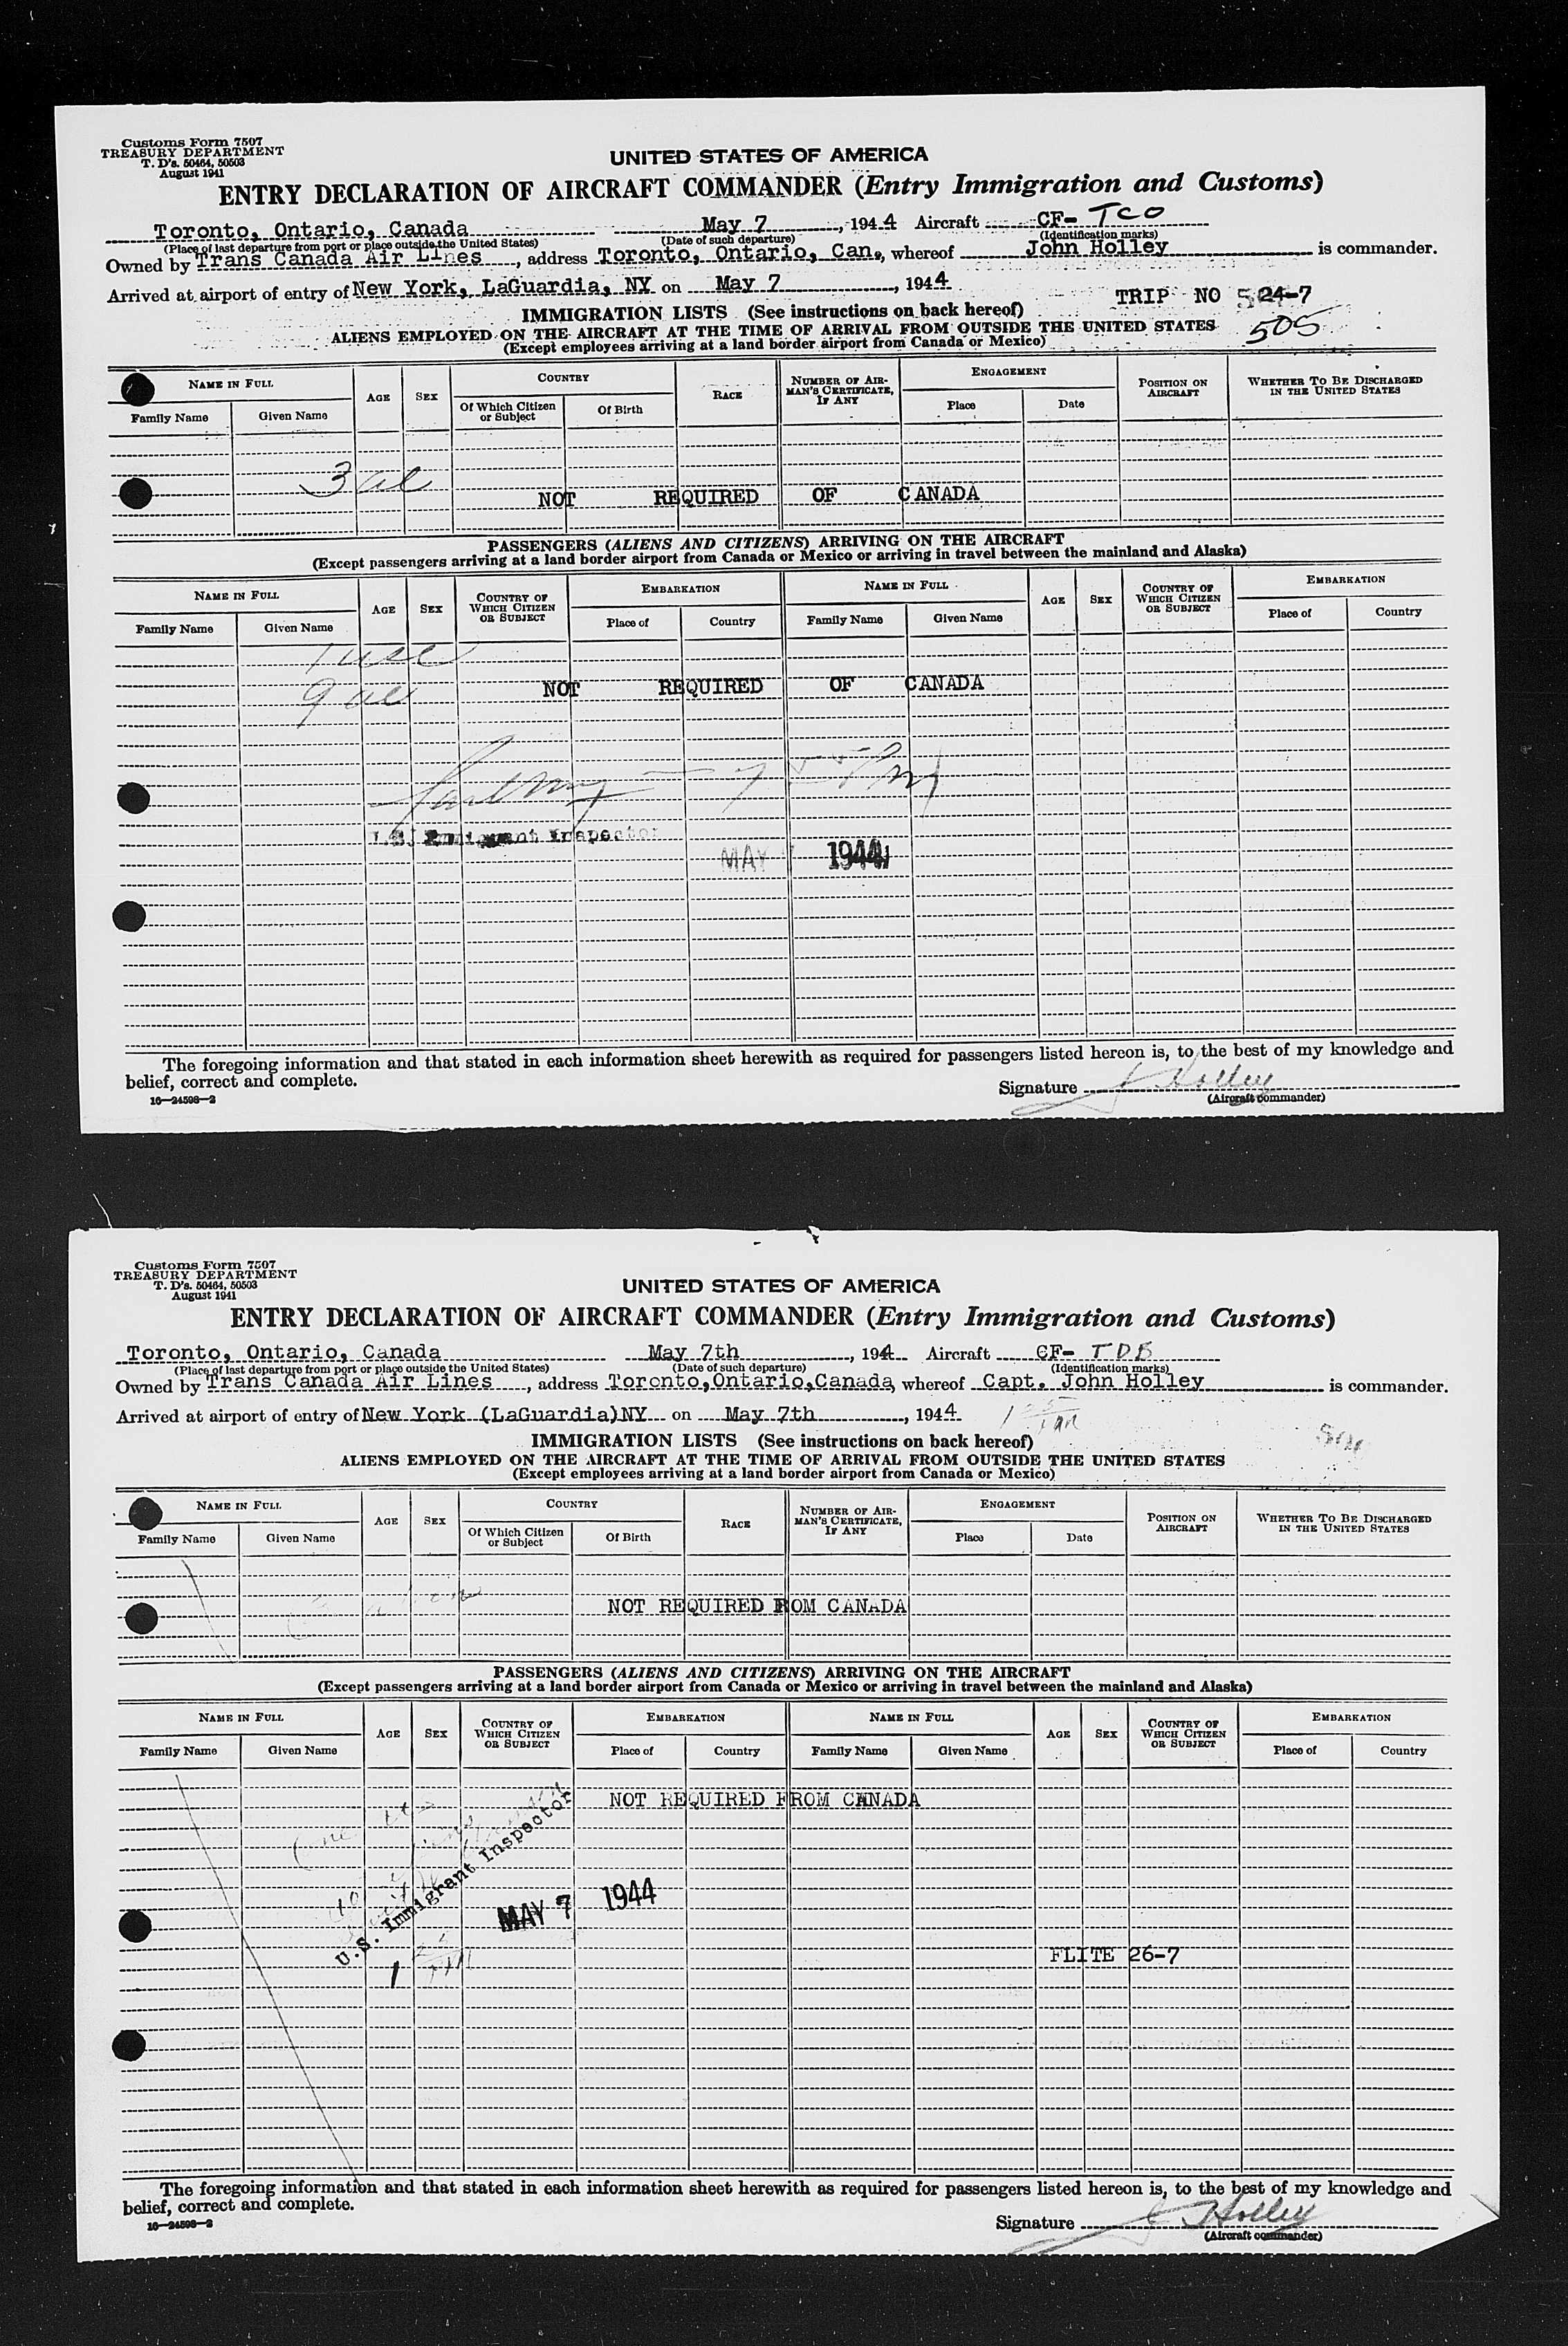 Customs Form 7507
TREASURY DEPARTMENT
T. D's. 50464, 50503
August 1941
UNITED STATES OF AMERICA
ENTRY DECLARATION OF AIRCRAFT COMMANDER (Entry Immigration and Customs)
Toronto, Ontario, Canada May 7, 1944 Aircraft CF- TCO
(Place of last departure from port or place outside the United States) (Date of such departure) (Identification marks)
Owned by Trans Canada Air Lines, address Toronto, Ontario, Can., whereof John Holley is commander.
Arrived at airport of entry of New York, LaGuardia, NY on May 7, 1944
TRIP NO 24-7
IMMIGRATION LISTS (See instructions on back hereof)
505
ALIENS EMPLOYED ON THE AIRCRAFT AT THE TIME OF ARRIVAL FROM OUTSIDE THE UNITED STATES
(Except employees arriving at a land border airport from Canada or Mexico)
NAME IN FULL AGE SEX COUNTRY RACE NUMBER OF AIRMAN'S CERTIFICATE, IF ANY ENGAGEMENT POSITION ON AIRCRAFT WHETHER TO BE DISCHARGED IN THE UNITED STATES
Family Name Given Name Of Which Citizen or Subject Of Birth Place Date
3 al
NOT REQUIRED OF CANADA
PASSENGERS (ALIENS AND CITIZENS) ARRIVING ON THE AIRCRAFT
(Except passengers arriving at a land border airport from Canada or Mexico or arriving in travel between the mainland and Alaska)
NAME IN FULL AGE SEX COUNTRY OF WHICH CITIZEN OR SUBJECT EMBARKATION NAME IN FULL AGE SEX COUNTRY OF WHICH CITIZEN OR SUBJECT EMBARKATION
Family Name Given Name Place of Country Family Name Given Name Place of Country
1 usc
9 al
NOT REQUIRED OF CANADA
U.S. Immigrant Inspector
MAY 7 1944
The foregoing information and that stated in each information sheet herewith as required for passengers listed hereon is, to the best of my knowledge and
belief, correct and complete.
Signature J Holley
16—24598—2 (Aircraft commander)
Customs Form 7507
TREASURY DEPARTMENT
T. D's. 50464, 50503
August 1941
UNITED STATES OF AMERICA
ENTRY DECLARATION OF AIRCRAFT COMMANDER (Entry Immigration and Customs)
Toronto, Ontario, Canada May 7th, 1944 Aircraft CF- TDB
(Place of last departure from port or place outside the United States) (Date of such departure) (Identification marks)
Owned by Trans Canada Air Lines, address Toronto,Ontario,Canada, whereof Capt. John Holley is commander.
Arrived at airport of entry of New York (LaGuardia)NY on May 7th, 1944
IMMIGRATION LISTS (See instructions on back hereof)
ALIENS EMPLOYED ON THE AIRCRAFT AT THE TIME OF ARRIVAL FROM OUTSIDE THE UNITED STATES
(Except employees arriving at a land border airport from Canada or Mexico)
NAME IN FULL AGE SEX COUNTRY RACE NUMBER OF AIRMAN'S CERTIFICATE, IF ANY ENGAGEMENT POSITION ON AIRCRAFT WHETHER TO BE DISCHARGED IN THE UNITED STATES
Family Name Given Name Of Which Citizen or Subject Of Birth Place Date
NOT REQUIRED ROM CANADA
PASSENGERS (ALIENS AND CITIZENS) ARRIVING ON THE AIRCRAFT
(Except passengers arriving at a land border airport from Canada or Mexico or arriving in travel between the mainland and Alaska)
NAME IN FULL AGE SEX COUNTRY OF WHICH CITIZEN OR SUBJECT EMBARKATION NAME IN FULL AGE SEX COUNTRY OF WHICH CITIZEN OR SUBJECT EMBARKATION
Family Name Given Name Place of Country Family Name Given Name Place of Country
NOT REQUIRED FROM CANADA
U.S. Immigrant Inspector
MAY 7 1944
FLITE 26-7
The foregoing information and that stated in each information sheet herewith as required for passengers listed hereon is, to the best of my knowledge and
belief, correct and complete.
Signature J Holley
16—24598—2 (Aircraft commander)